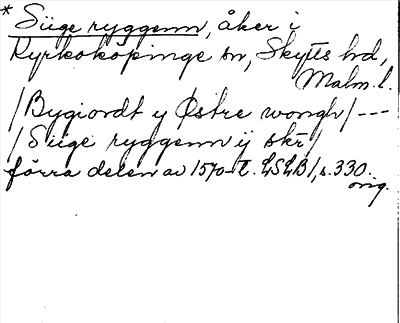 * Siige ryggenn, åker i
Kyrkoköpinge sn, Skytts hd,
Malm. l.
/Bygiordt y Østre wongh/ ---
/Siige ryggenn ij skr/
förra delen av 1570-t. LSLB1, s. 330.
orig.